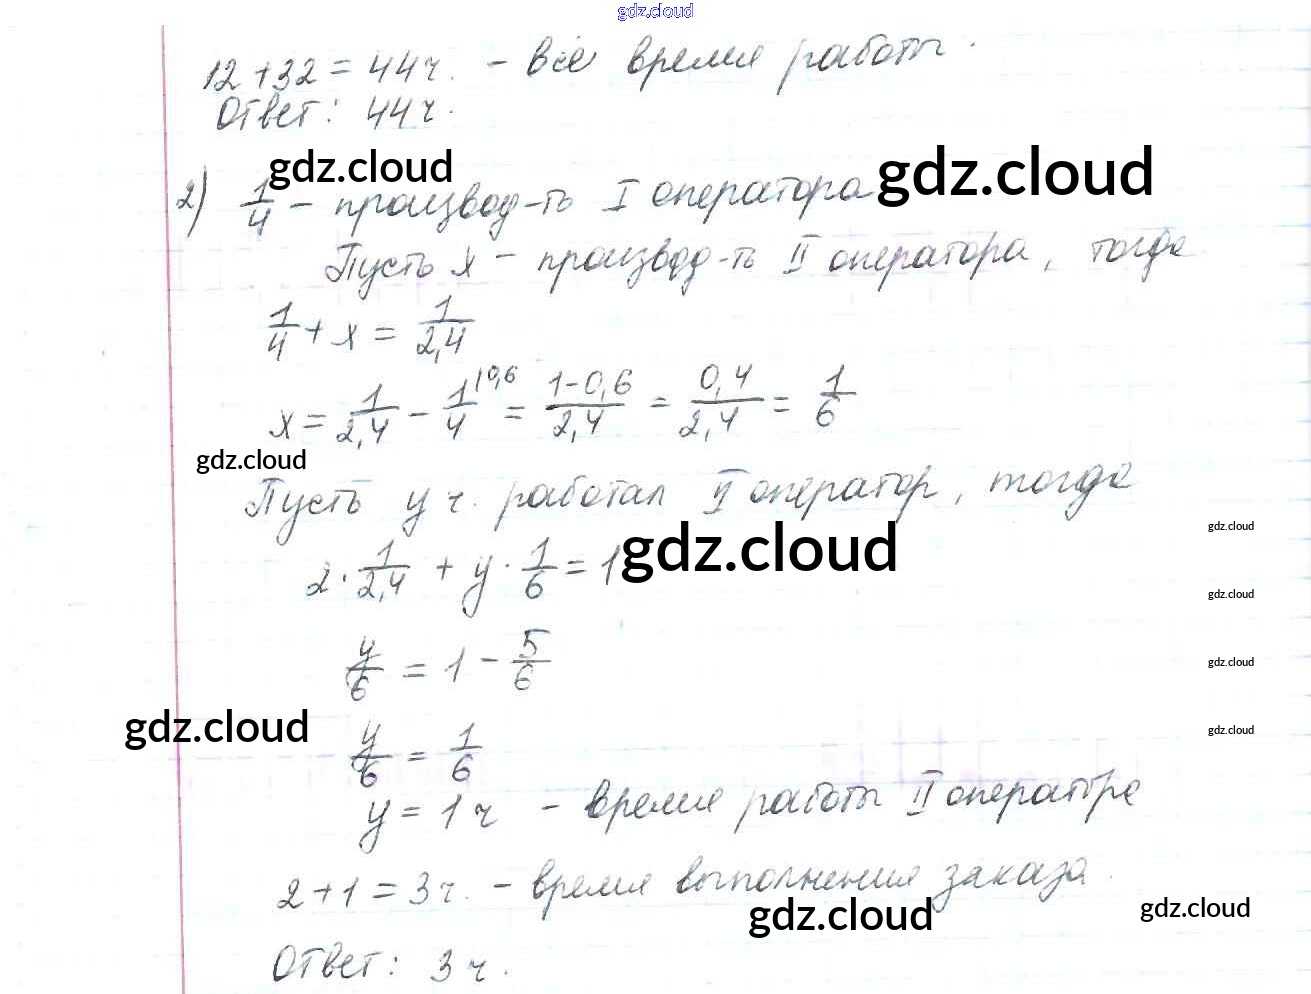 gdz.cloud
12 + 32 = 44 ч. - всё время работы.
Ответ: 44 ч.
gdz.cloud
gdz.cloud
2) 1/4 - производ-ть I оператора
Пусть x - производ-ть II оператора, тогда
1/4 + x = 1/2,4
x = 1/2,4 - 1/4 \0,6 = 1-0,6/2,4 = 0,4/2,4 = 1/6
gdz.cloud
Пусть y ч. работал II оператор, тогда
gdz.cloud
gdz.cloud
2 · 1/2,4 + y · 1/6 = 1
gdz.cloud
y/6 = 1 - 5/6
gdz.cloud
gdz.cloud
gdz.cloud
y/6 = 1/6
y = 1 ч - время работы II оператора
2 + 1 = 3 ч. - время выполнения заказа.
gdz.cloud
gdz.cloud
Ответ: 3 ч.